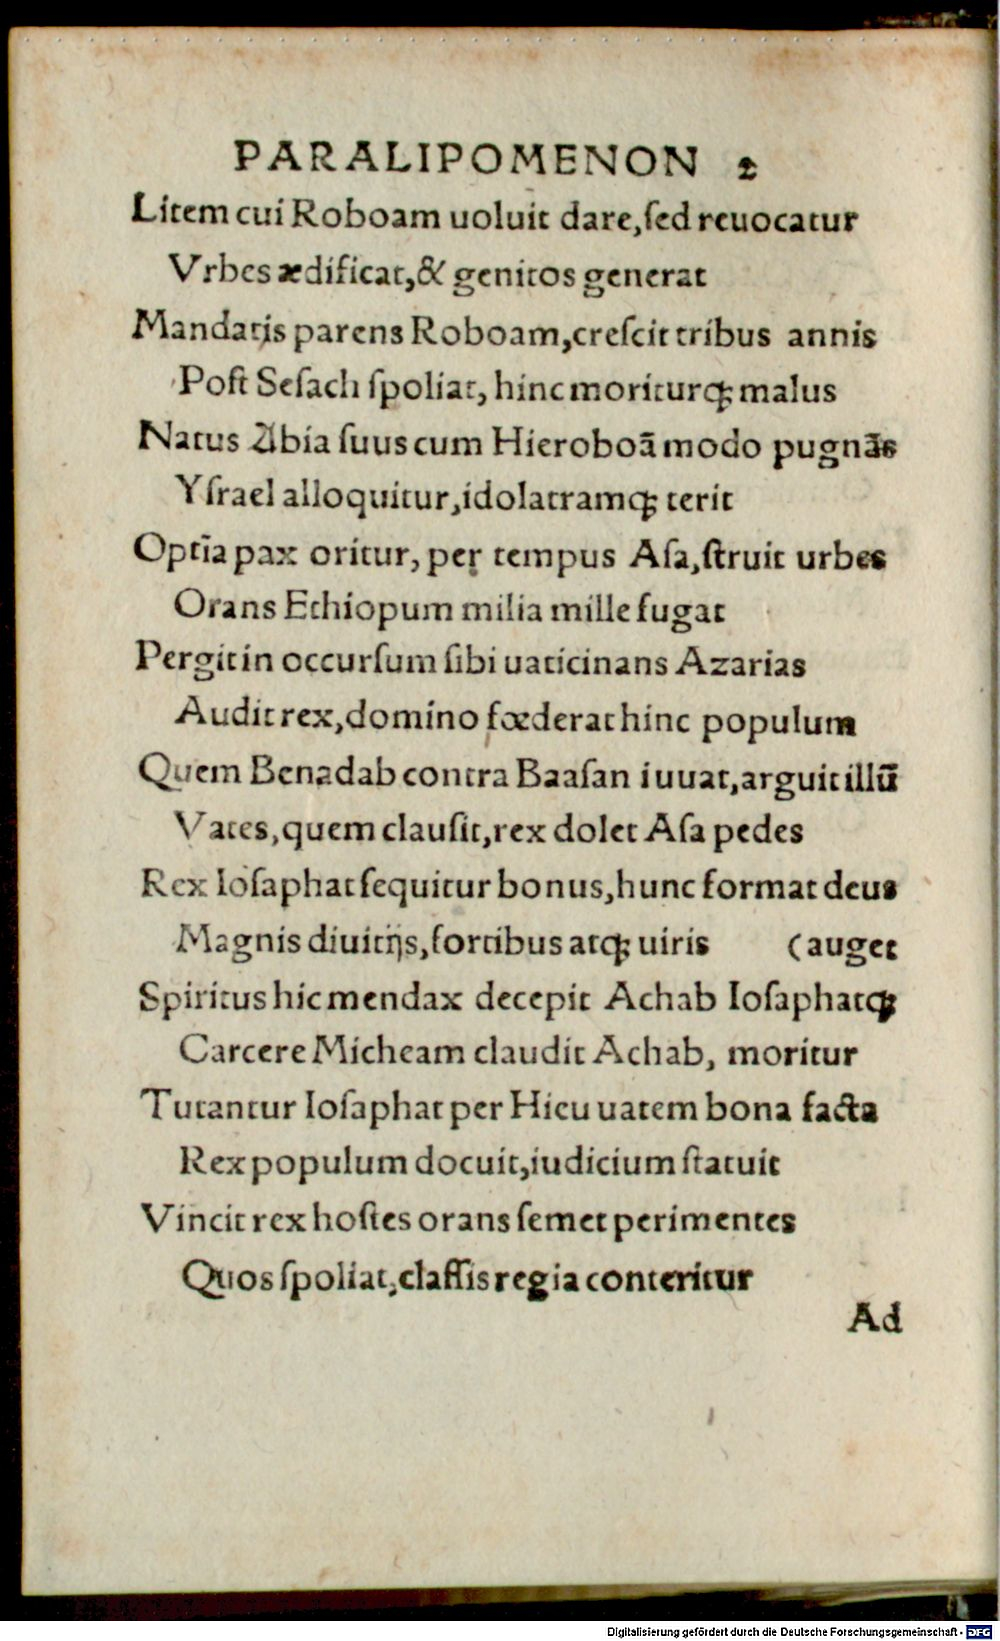 PARALIPOMENON 2
Litem cui Roboam uoluit dare,ſed reuocatur
Vrbes ædificat,& genitos generat
Mandatis parens Roboam,creſcit tribus annis
Poſt Seſach ſpoliat, hinc moriturqꝫ malus
Natus Abia ſuus cum Hieroboā modo pugnās
Yſrael alloquitur,idolatramqꝫ terit
Optīa pax oritur, per tempus Aſa,ſtruit urbes
Orans Ethiopum milia mille fugat
Pergit in occurſum ſibi uaticinans Azarias
Audit rex,domino fœderat hinc populum
Quem Benadab contra Baaſan iuuat,arguit illū
Vates,quem clauſit,rex dolet Aſa pedes
Rex Ioſaphat ſequitur bonus,hunc format deus
Magnis diuitijs,fortibus atqꝫ uiris (auget
Spiritus hic mendax decepit Achab Ioſaphatqꝫ
Carcere Micheam claudit Achab, moritur
Tutantur Ioſaphat per Hieu uatem bona facta
Rex populum docuit,iudicium ſtatuit
Vincit rex hoſtes orans ſemet perimentes
Quos ſpoliat,claſſis regia conteritur
Ad
Digitalisierung gefördert durch die Deutsche Forschungsgemeinschaft - DFG